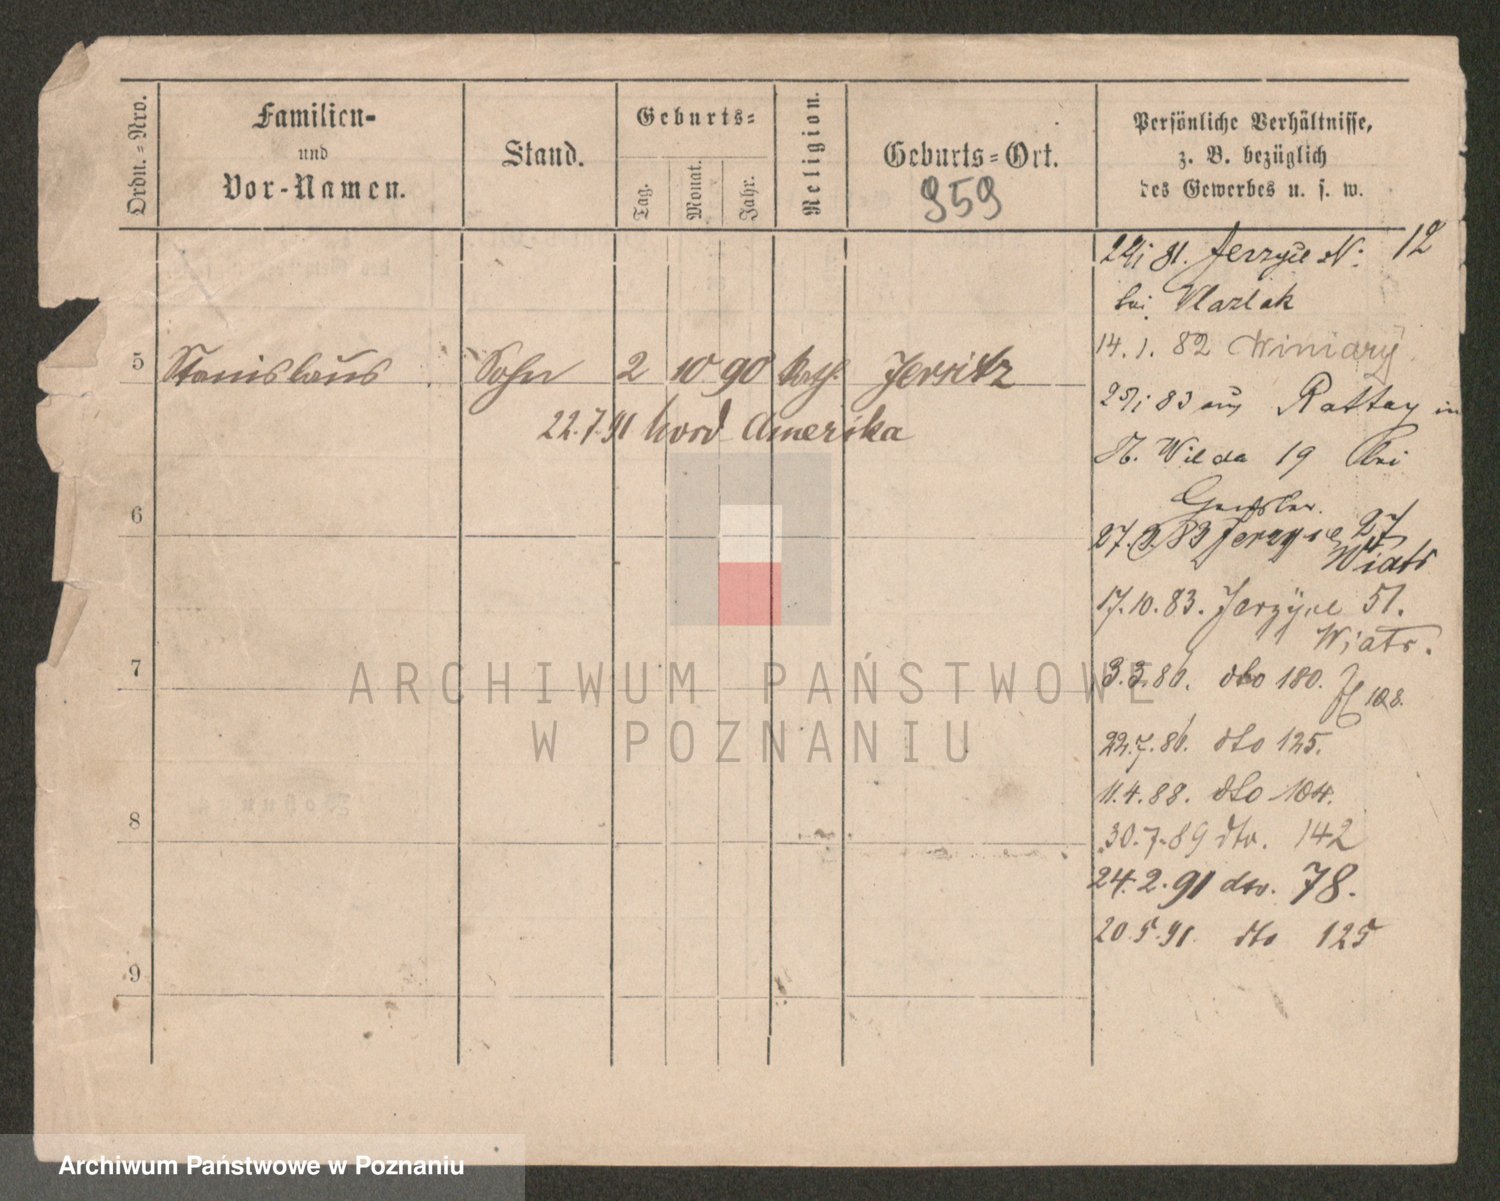 Ordn.=Nro.
Familien-
und
Vor-Namen.
Stand.
Geburts=
Tag.
Monat.
Jahr.
Religion.
Geburts=Ort.
959
Persönliche Verhältnisse,
z. B. bezüglich
des Gewerbes u. s. w.
81. Jerzyce N: 12
bei Wlazlak
14. 1. 82 Winiary
5 Stanislaus Sohn 2 10 90 Kath. Jersitz
83 aus Rattay in
22.7.91 Nord Amerika
St. Wilda 19 bei
6
27. 83 Jerzyce 27
Wiatr
17.10.83. Jerzyce 51.
Wiatr.
7
3.3.86. dto 180.
22.7.86. dto 125.
11.4.88. dto 104.
8
30.7.89 dto. 142
24.2.91 dto. 78.
20.5.91. dto 125
9
ARCHIWUM PAŃSTWOWE
W POZNANIU
Archiwum Państwowe w Poznaniu